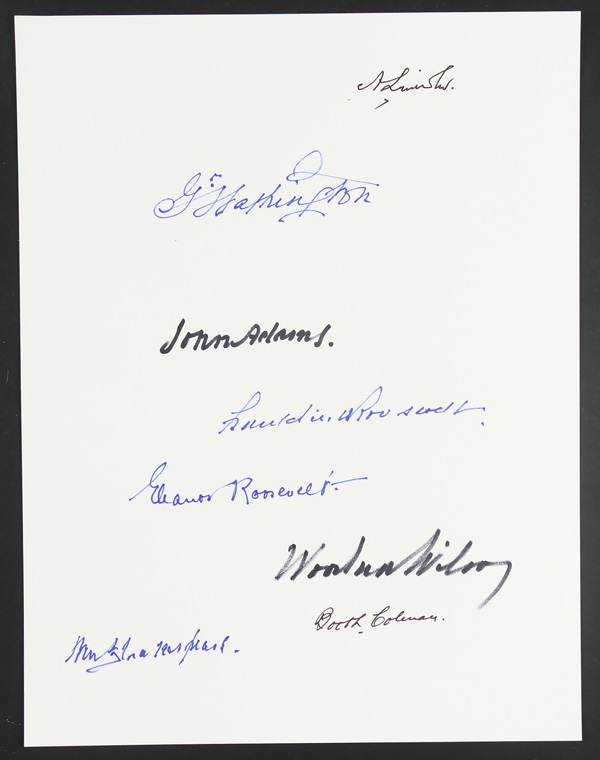 A Lincoln.
G:Washington
John Adams.
Franklin D Roosevelt.
Eleanor Roosevelt.
Woodrow Wilson
Booth Colman.